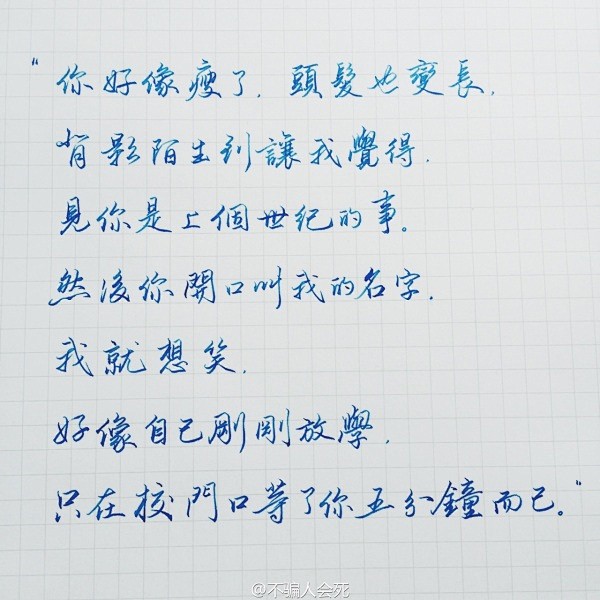 “你好像瘦了，頭髮也變長，
背影陌生到讓我覺得，
見你是上個世紀的事。
然後你開口叫我的名字，
我就想笑，
好像自己剛剛放學，
只在校門口等了你五分鐘而已。”
@不骗人会死